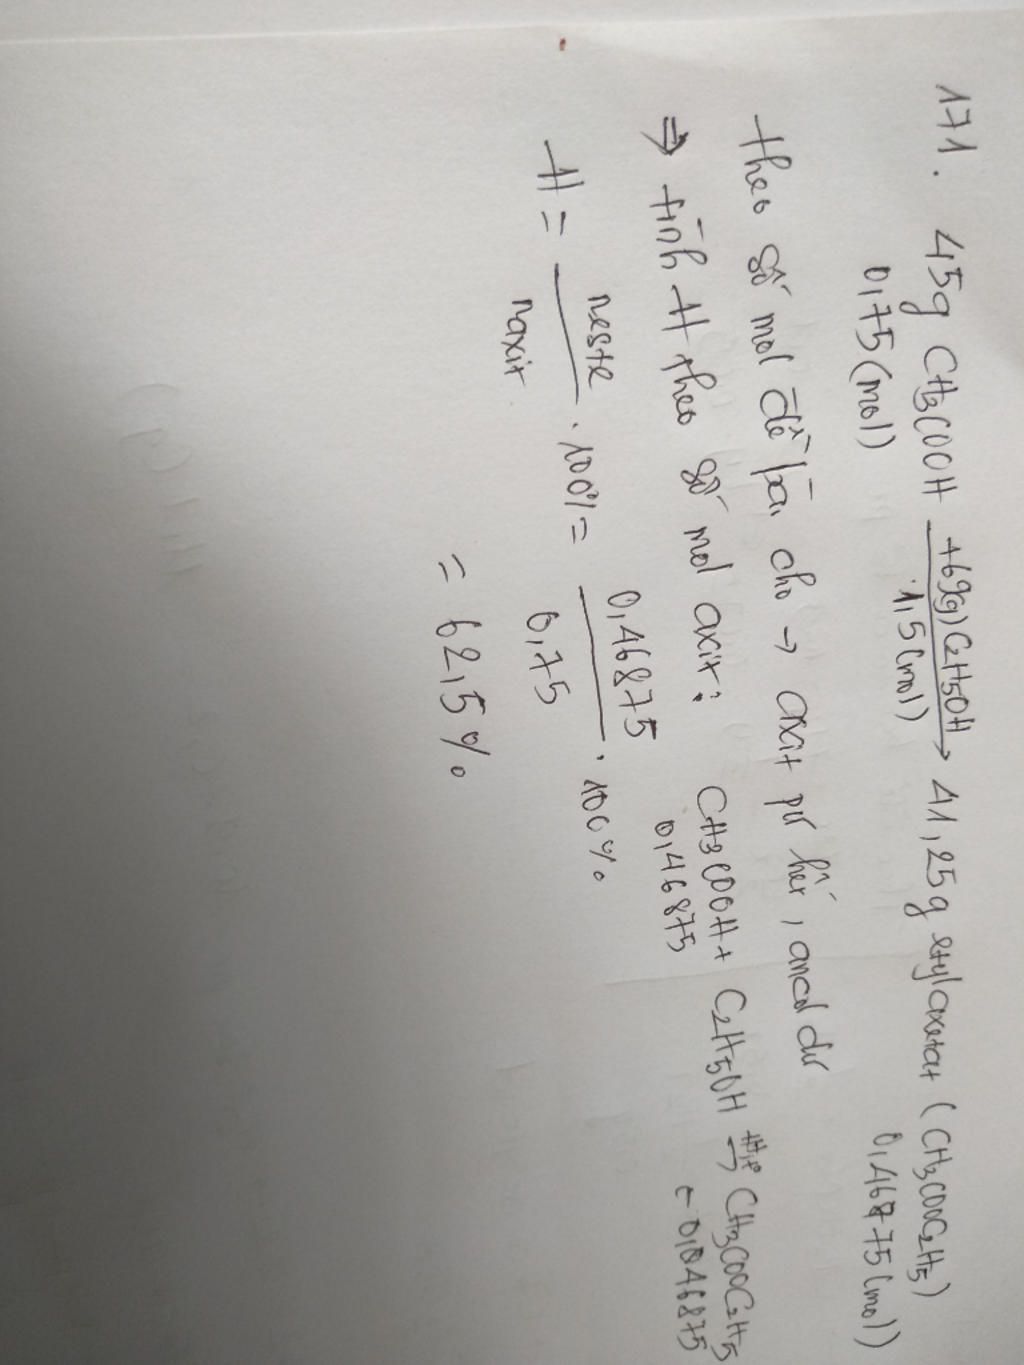 171. 45g CH3COOH +69(g) C2H5OH → 41,25g etylaxetat (CH3COOC2H5)
0,75(mol) 1,5(mol) 0,46875(mol)
theo số mol đề bài cho → axit pứ hết, ancol dư
⇒ tính H theo số mol axit: CH3COOH + C2H5OH → CH3COOC2H5
0,46875 ← 0,046875
H = neste / naxit . 100% = 0,46875 / 0,75 . 100%
= 62,5%